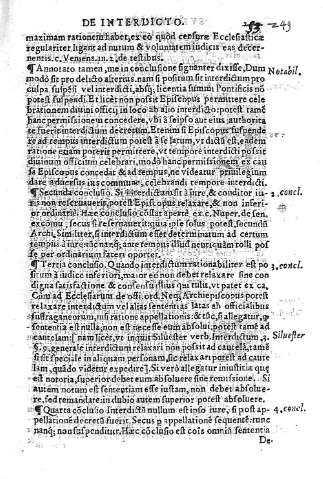 DE INTERDICTO. 249
maximam rationem habet, ex eo quòd censuræ Ecclesiasticæ
regulariter ligant ad nutum & voluntatem iudicis eas decer-
nentis. c. Veniens. in. 2. de testibus.
¶ Annotato tamen, me in conclusione signanter dixisse, Dum
modò sit pro delicto alterius. nam si positum sit interdictum pro Notabil.
culpa suspẽsi vel interdicti, absq; licentia summi Pontificis nõ
potest suspendi. Et licèt non possit Episcopus permittere cele
brationem diuini officij in loco ab alio interdicto: potest tamẽ
hanc permissionem concedere, vbi à seipso aut eius authorita
te fuerit interdictum decretum. Etenim si Episcopus suspende
re ad tempus interdictum potest à se latum, vt dictũ est, eadem
ratione etiam poterit permittere, vt tempore interdicti possit
diuinum officium celebrari, modò hanc permissionem ex cau
sa Episcopus concedat & ad tempus, ne videatur priuilegium
dare aduersus ius commune, celebrandi tempore interdicti.
¶ Secunda conclusio. Si interdictum sit à iure, & conditor iu- 2. concl.
ris non reseruauerit, potest Episcopus relaxare, & non inferi-
or ordinario. Hæc conclusio colligitur apertè ex. c. Nuper. de sen.
excom. secus si reseruauerit: quia ipse solus potest, secundũ
Archi. Similiter, si interdictum esset determinatum ad certum
tempus à iure
se per ordinarium fateri oportet.
¶ Tertio conclusio. Quando interdictum rationabiliter est po 3. concl.
situm à iudice inferiori, maior eo non debet relaxare sine con
digna satisfactione & consensu illius qui tulit, vt patet ex ca.
Cùm ab Ecclesiarum de offi. ord. Neq; Archiepiscopus potest
relaxare interdictum vel alias sententias latas ab officialibus
suffraganeorum suorum, nisi ratione appellationis: & tũc, si allegatur, q̃
sententia est nulla, non est necesse eum absolui, potest tamẽ ad
cautelam [nam licet, vt inquit Siluester verb. Interdictum. 3. Siluester
§. 9. generale interdictum relaxari non possit ad cautelã, tamẽ
si sit speciale in aliquam personam, sic relaxari potest ad caute
lam, quãdo videtur expedire]. Si verò allegatur iniustitia quæ
est notoria, superior debet eum absoluere sine remissione. Si
autem notum est sententiam esse iustam, non debet absolue-
re, sed remandare: in dubio autem superior potest absoluere.
¶ Quarta cõclusio. Interdictũ nullum est ipso iure, si post ap- 4. concl.
pellationẽ decretũ fuerit. Secus si appellatione sequentẽ: tunc
nanq; nõ suspenditur. Hæc cõclusio est cõis omniũ sententia
De-